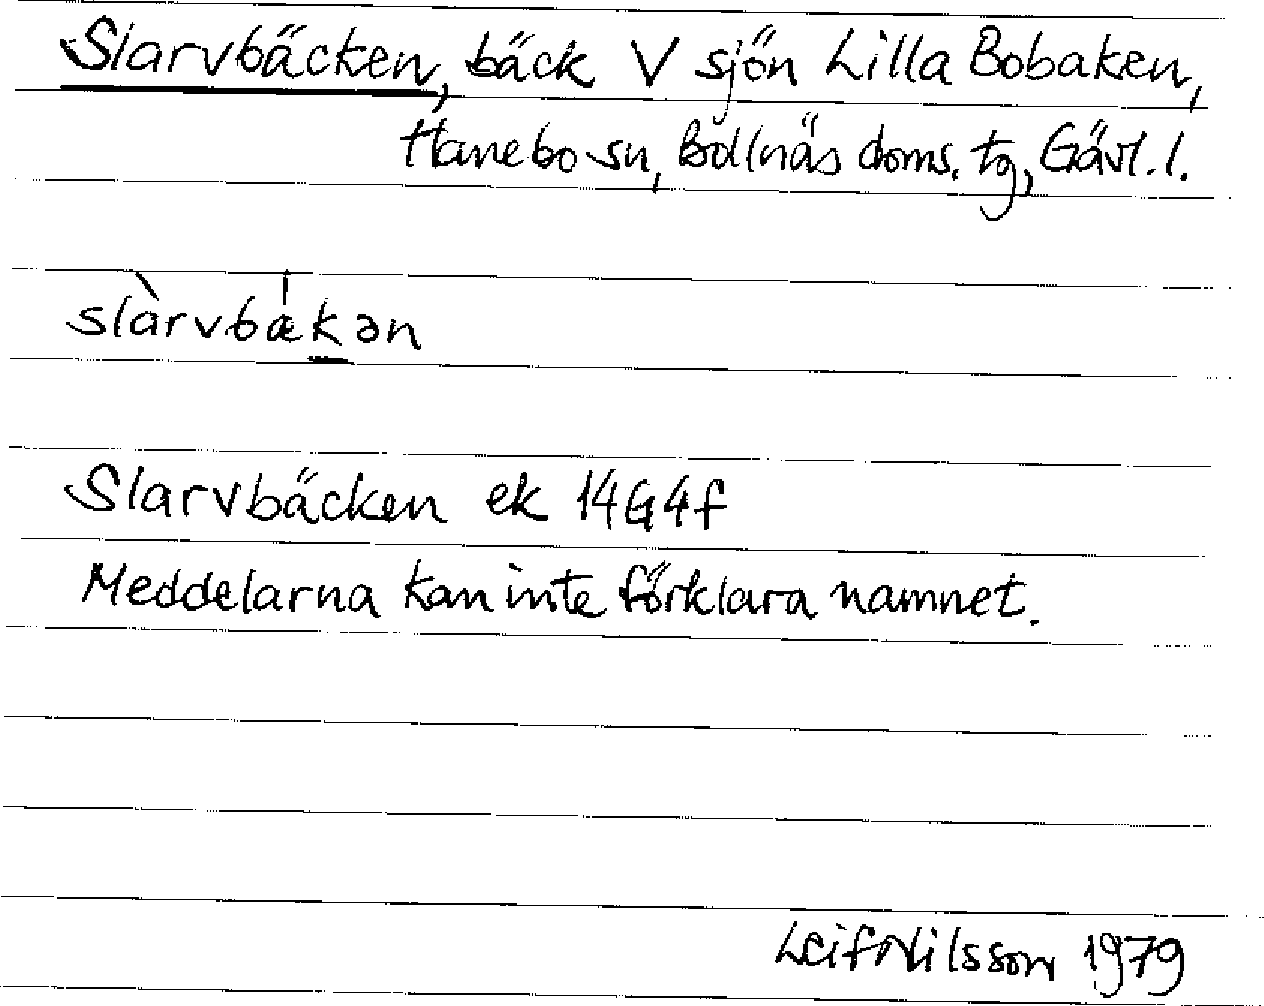 Slarvbäcken, bäck V sjön Lilla Bobaken,
Hanebo sn, Bollnäs doms. tg, Gävl. l.
slàrvbæ̍kən
Slarvbäcken ek 14G4f
Meddelarna kan inte förklara namnet.
Leif Nilsson 1979